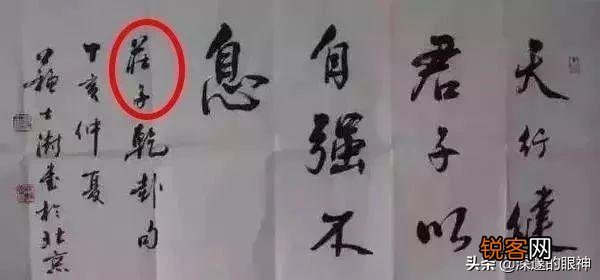 天行健
君子以
自强不
息
莊子乾卦句
丁亥仲夏
士澍書於北京
锐客网
头条@深邃的眼神